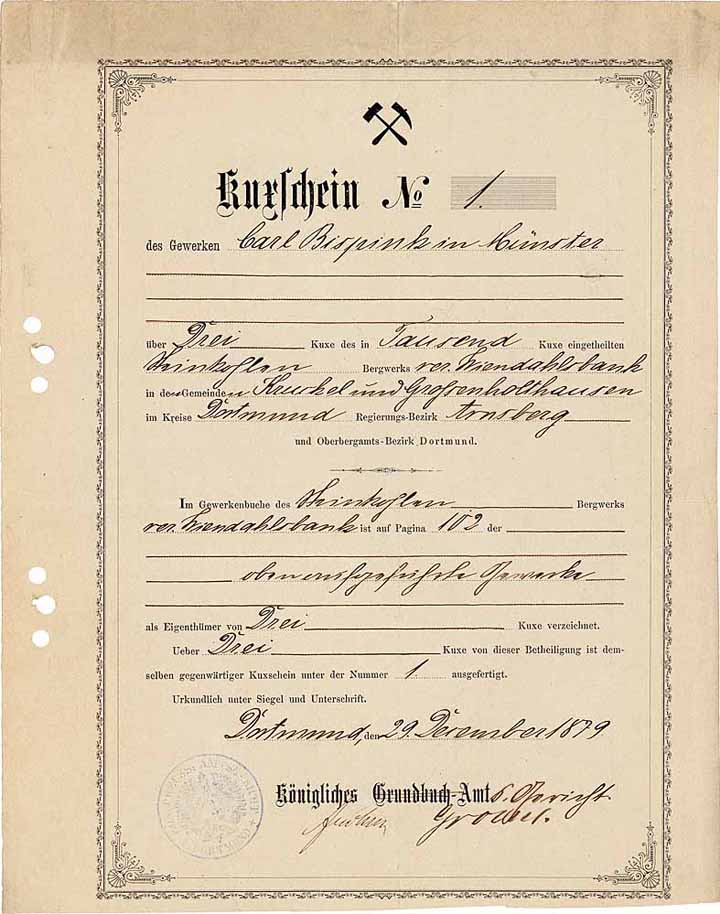 Kuxschein No 1.
des Gewerken Carl Bispink in Münster
über Drei Kuxe des in Tausend Kuxe eingetheilten
Steinkohlen Bergwerks ver. Wiendahlsbank
in den Gemeinden Kruckel und Großenholthausen
im Kreise Dortmund Regierungs-Bezirk Arnsberg
und Oberbergamts-Bezirk Dortmund.
Im Gewerkenbuche des Steinkohlen Bergwerks
ver. Wiendahlsbank ist auf Pagina 102 der
oben aufgeführte Gewerke
als Eigenthümer von Drei Kuxe verzeichnet.
Ueber Drei Kuxe von dieser Betheiligung ist dem-
selben gegenwärtiger Kuxschein unter der Nummer 1. ausgefertigt.
Urkundlich unter Siegel und Unterschrift.
Dortmund, den 29. December 1879
Königliches Grundbuch-Amts Gericht.